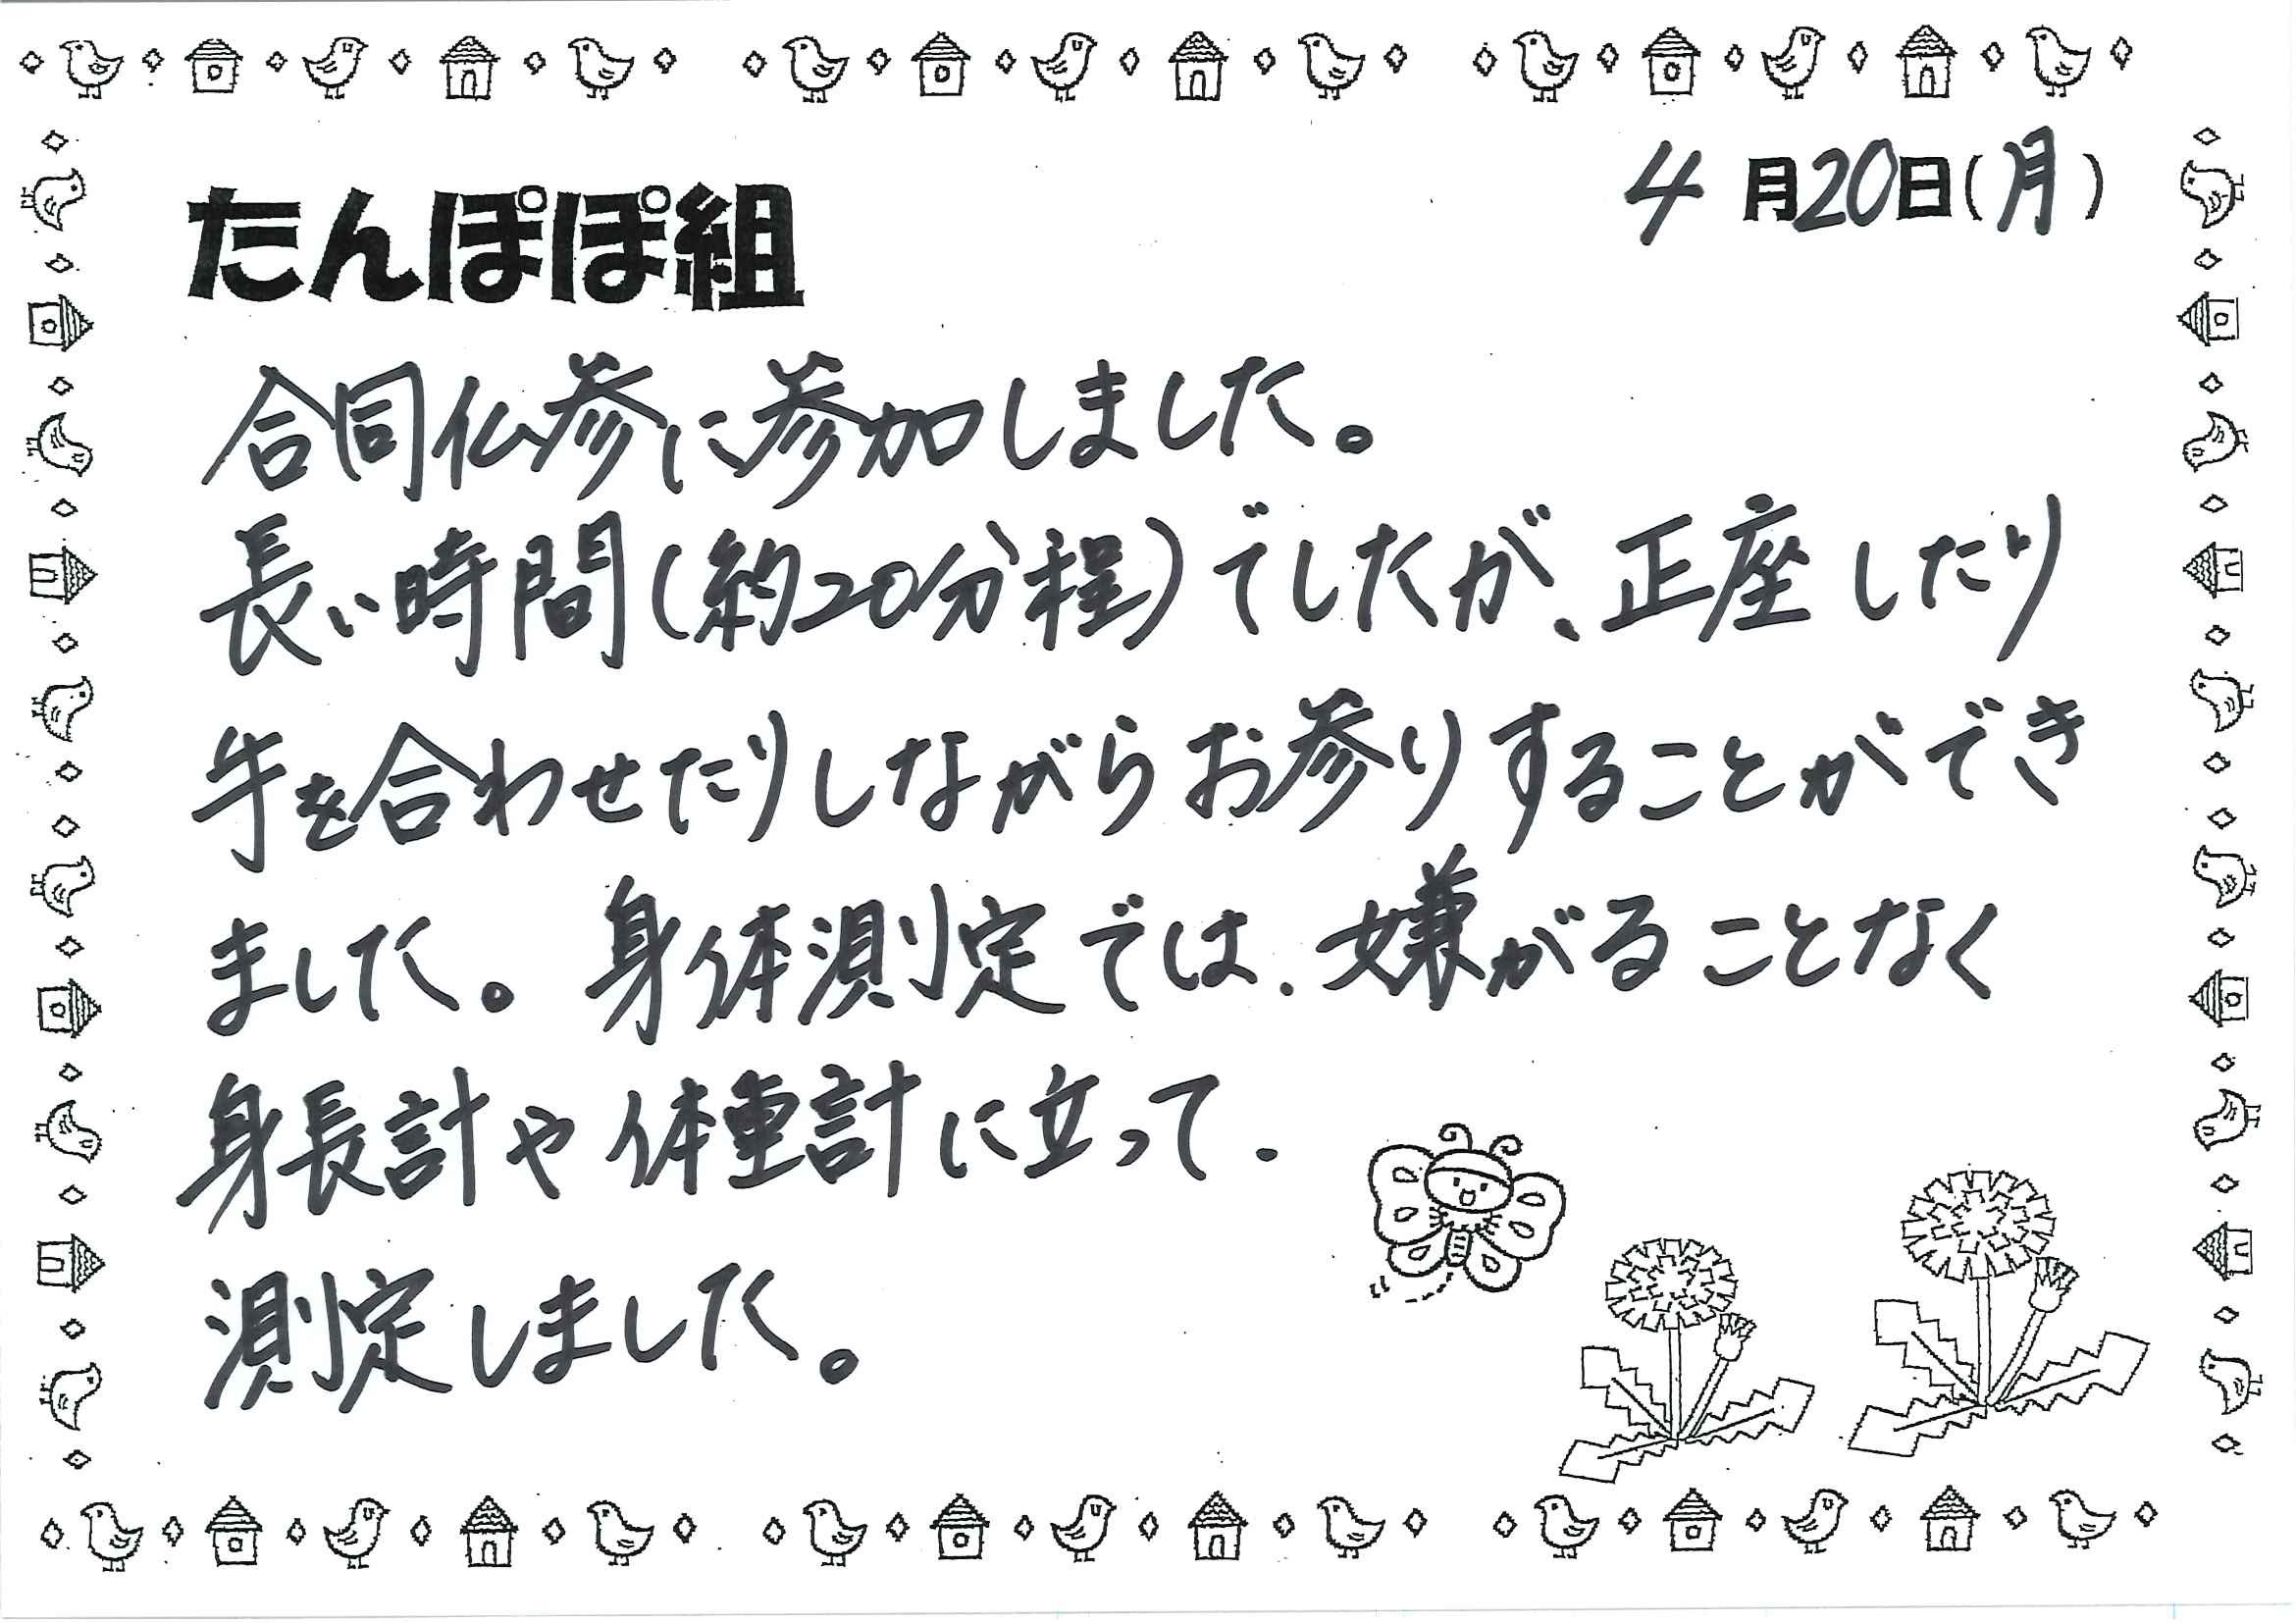 4月20日(月)
たんぽぽ組
合同仏参に参加しました。
長い時間(約20分程)でしたが、正座したり
手を合わせたりしながらお参りすることができ
ました。身体測定では、嫌がることなく
身長計や体重計に立って、
測定しました。